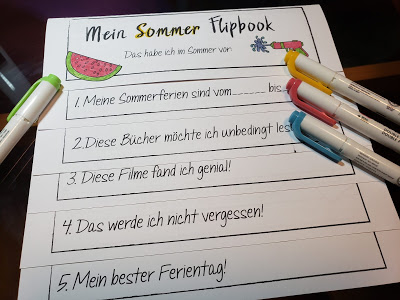 Mein Sommer Flipbook
Das habe ich im Sommer vor:
1. Meine Sommerferien sind vom ________ bis
2. Diese Bücher möchte ich unbedingt les
3. Diese Filme fand ich genial!
4. Das werde ich nicht vergessen!
5. Mein bester Ferientag!